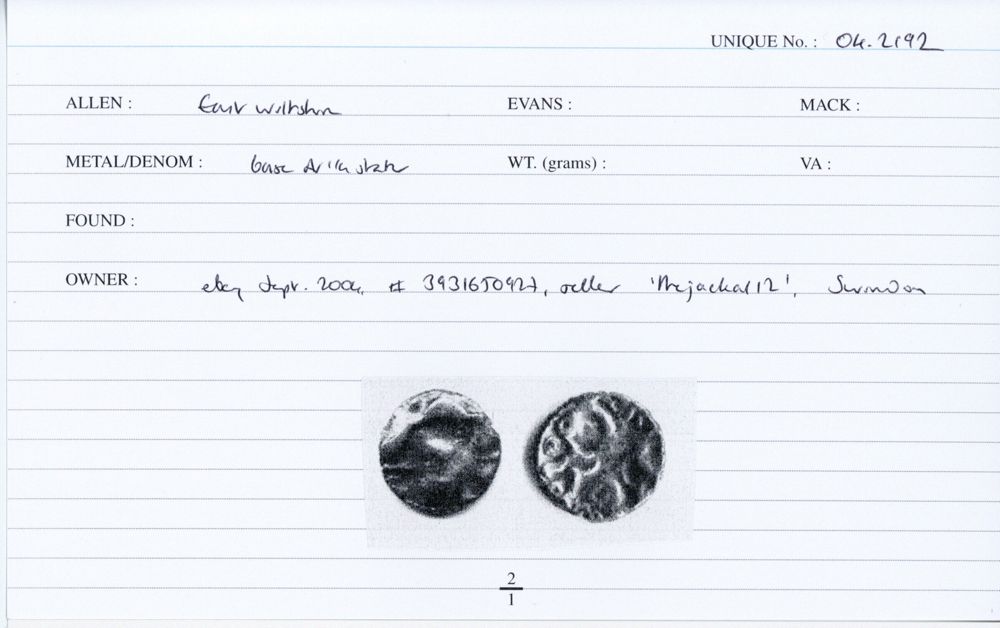 UNIQUE No. : 04.2192
ALLEN : East Wiltshire EVANS : MACK :
METAL/DENOM : base stater WT. (grams) : VA :
FOUND :
OWNER : ebay Sept. 2004, # 3931650927, seller 'Mrjackal12', Swindon
2
1